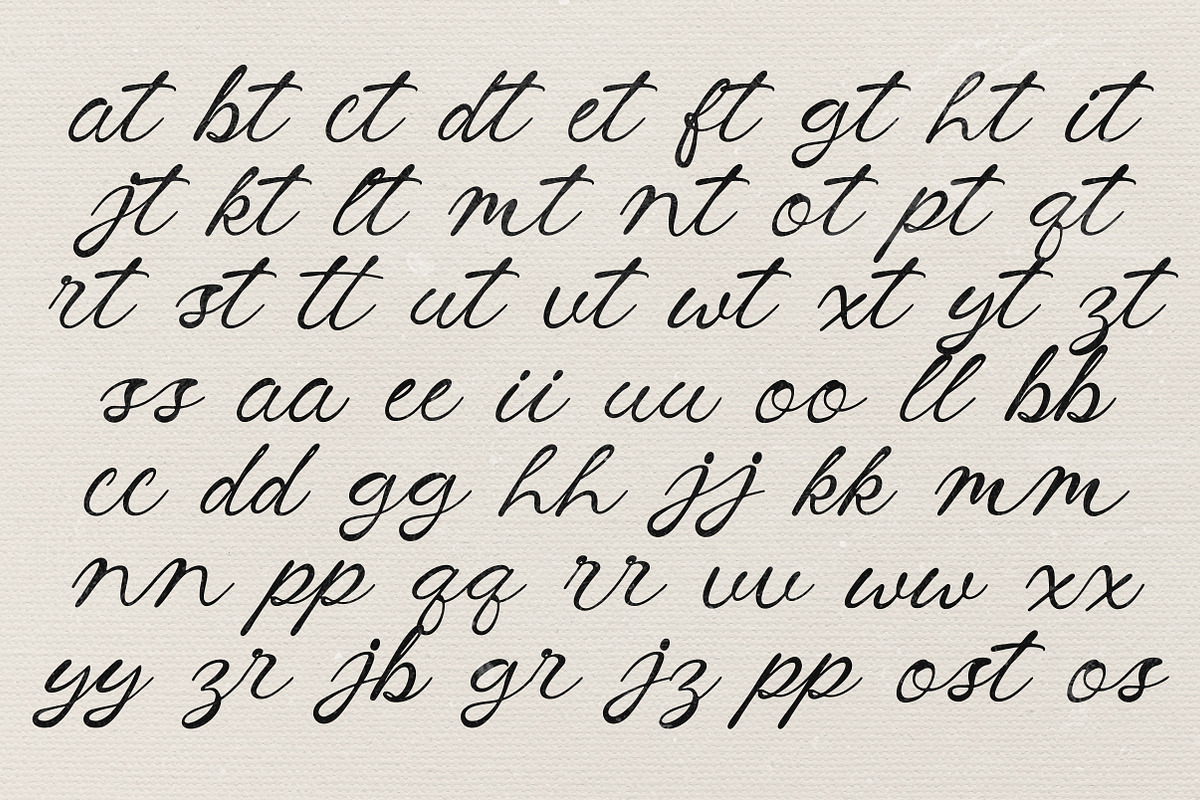 at bt ct dt et ft gt ht it
jt kt lt mt nt ot pt qt
rt st tt ut vt wt xt yt zt
ss aa ee ii uu oo ll bb
cc dd gg hh jj kk mm
nn pp qq rr vv ww xx
yy zr jb gr jz pp ost os